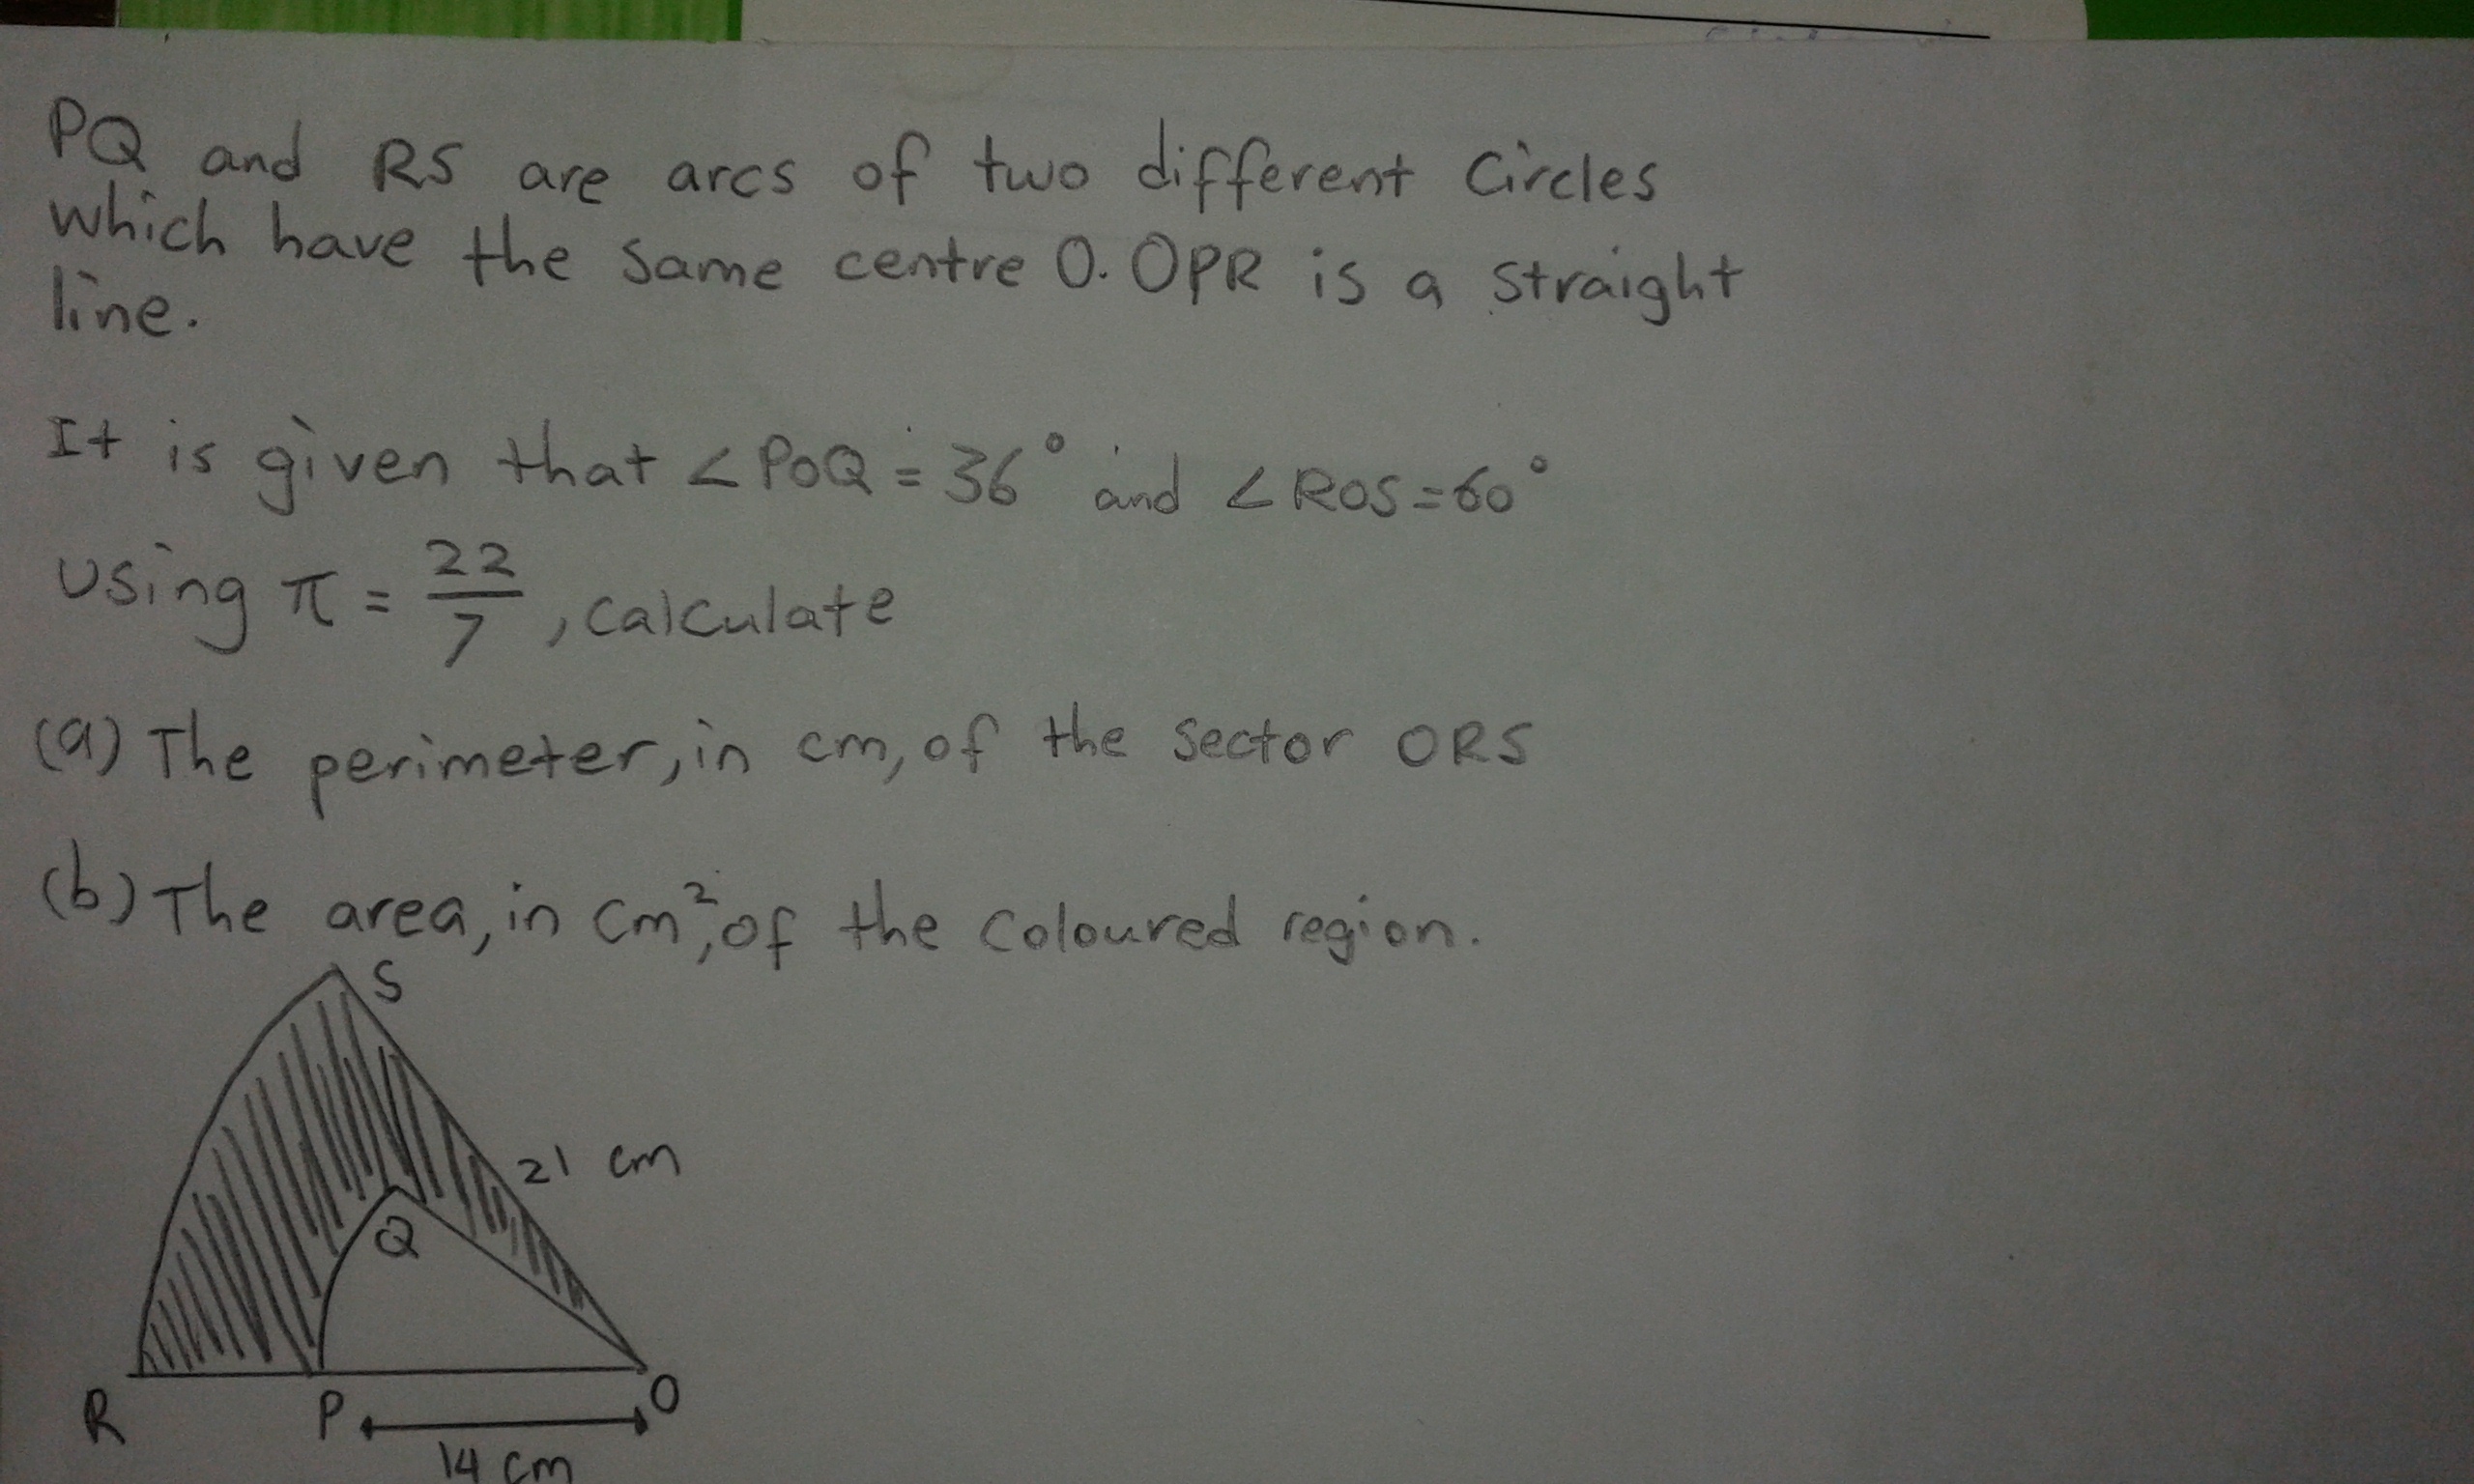 PQ and RS are arcs of two different circles
which have the same centre O. OPR is a straight
line.
It is given that ∠POQ = 36° and ∠ROS = 60°
Using π = 22/7, calculate
(a) The perimeter, in cm, of the sector ORS
(b) The area, in cm², of the coloured region.
S
21 cm
Q
R P O
14 cm